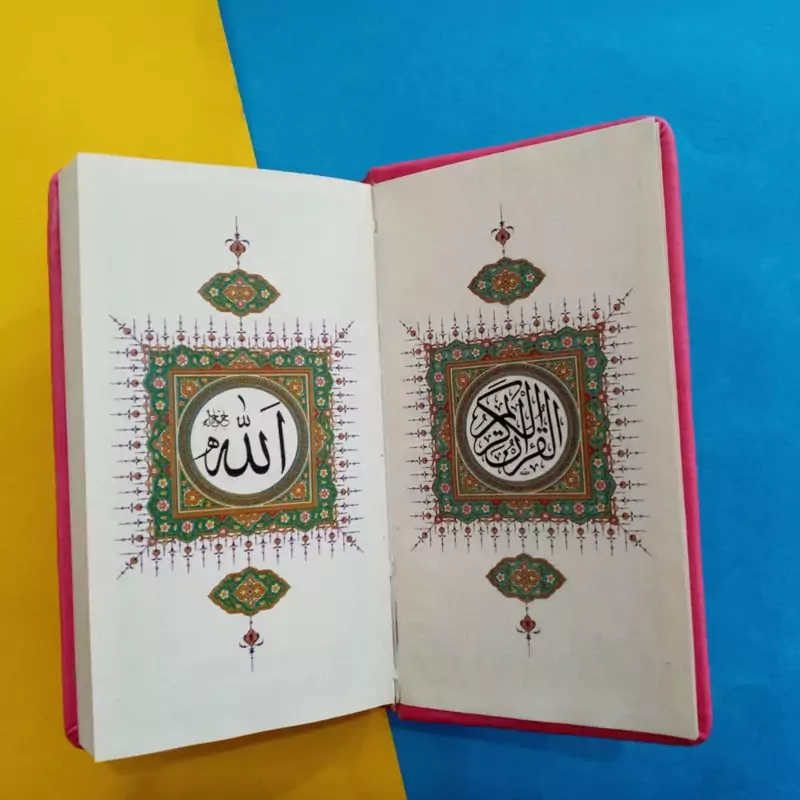 القرآن الكريم
الله
جل جلاله